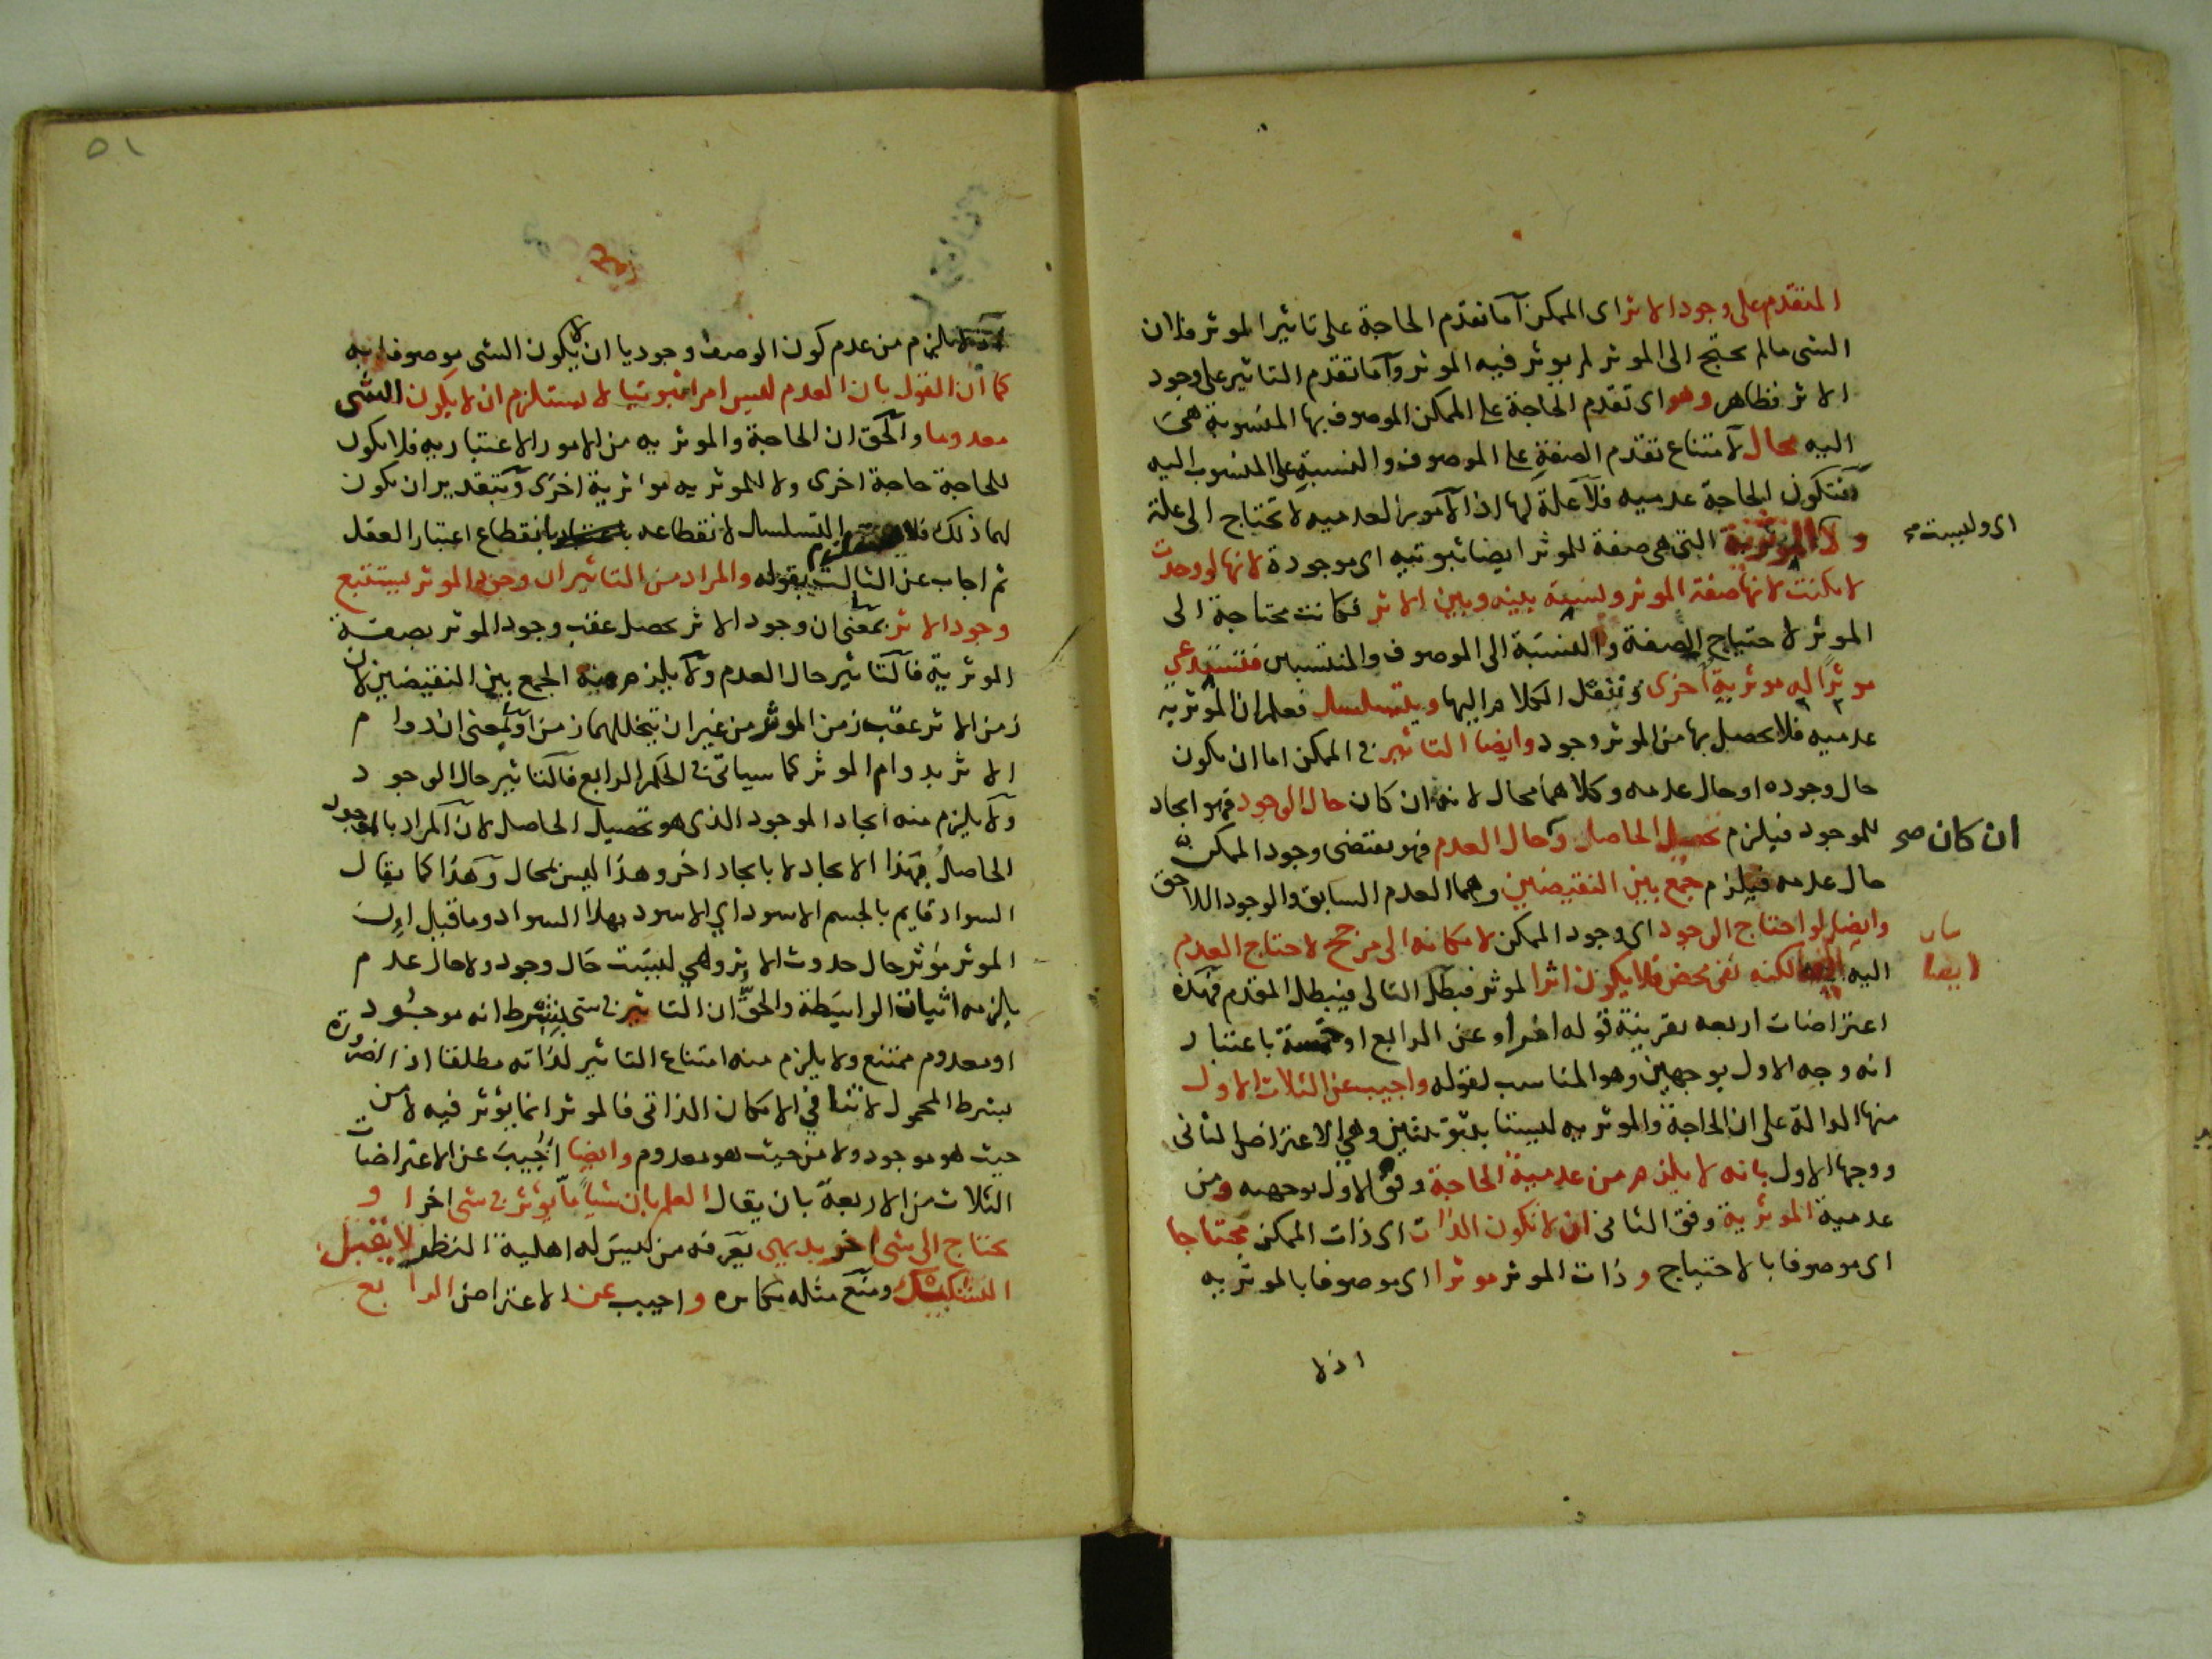 المتقدم على وجود الاثر اى الممكن اما تقدم الحاجة على تاثير الموثر فلان
الشى مالم يحتج الى الموثر لم يوثر فيه الموثر واما تقدم التاثير على وجود
الاثر فظاهر وهو اى تقدم الحاجة على الممكن الموصوف بها المنسوبة هى
اليه محال لامتناع تقدم الصفة على الموصوف والنسبة على المنسوب اليه
فتكون الحاجة عدميه فلا علة لها اذ الامور العدميه لا تحتاج الى علة
ولا الموثرية التى هى صفة للموثر ايضا ثبوتيه اى موجودة لانها لو وجدت
اى وليست
لامكنت لانها صفة الموثر ونسبة بينه وبين الاثر فكانت محتاجة الى
الموثر لاحتياج الصفة والنسبة الى الموصوف والمنتسبين فتستدعى
موثرا له موثرية اخرى وننقل الكلام اليها ويتسلسل فعلم ان الموثريه
عدميه فلا يحصل بها من الموثر وجود وايضا التاثير فى الممكن اما ان يكون
حال وجوده او حال عدمه وكلاهما محال لانه ان كان حال الوجود فهو ايجاد
للموجود فيلزم تحصيل الحاصل وحال العدم فهو يقتضى وجود الممكن
ان كان صح
حال عدمه فيلزم جمع بين النقيضين وهما العدم السابق والوجود اللاحق
وايضا لو احتاج الوجود اى وجود الممكن لامكانه الى مرجح لاحتاج العدم
اليه لكنه نفى محض فلا يكون اثرا لموثر فبطل التالى فيبطل المقدم فهذه
ايضا
اعتراضات اربعه بقرينة قوله اخرا وعن الرابع او خمسة باعتبار
انه وجه الاول بوجهين وهو المناسب لقوله واجيب عن الثلاث الاول
منها الدالة على ان الحاجة والموثريه ليستا بثبوتيتين وهى الاعتراض الثانى
ووجها الاول بانه لا يلزم من عدمية الحاجة وفق الاول بوجهيه ومن
عدمية الموثرية وفق الثانى ان لا تكون الذات اى ذات الممكن محتاجا
اى موصوفا بالاحتياج وذات الموثر موثرا اى موصوفا بالموثريه
اذ لا
٥١
يلزم من عدم كون الوصف وجوديا ان لا يكون الشى موصوفا به
كما ان القول بان العدم ليس امرا ثبوتيا لا يستلزم ان لا يكون الشى
معدوما والحق ان الحاجة والموثريه من الامور الاعتباريه فلا يكون
للحاجة حاجة اخرى ولا للموثريه موثرية اخرى وبتقدير ان يكون
لهما ذلك فلا يستلزم التسلسل لانقطاعه بانقطاع اعتبار العقل
ثم اجاب عن الثالث بقوله والمراد من التاثير ان وجود الموثر يستتبع
وجود الاثر بمعنى ان وجود الاثر يحصل عقب وجود الموثر بصفة
الموثرية فالتاثير حال العدم ولا يلزم منه الجمع بين النقيضين لان
زمن الاثر عقب زمن الموثر من غير ان يتخللهما زمن او بمعنى ان دوام
الاثر بدوام الموثر كما سياتى فى الحكم الرابع فالتاثير حال الوجود
ولا يلزم منه ايجاد الموجود الذى هو تحصيل الحاصل لان المراد بالموجود
الحاصل بهذا الايجاد لا بايجاد اخر وهذا ليس بمحال وهذا كما يقال
السواد قايم بالجسم الاسود اي الاسود بهذا السواد وما قيل ان
الموثر موثر حال حدوث الاثر وهي ليست حال وجود ولا حال عدم
يلزمه اثبات الواسطة والحق ان التاثير فى شى بشرط انه موجود
او معدوم ممتنع ولا يلزم منه امتناع التاثير لذاته مطلقا اذ الضرورة
بشرط المحمول لا تنافي الامكان الذاتى فالموثر انما يؤثر فيه لا من
حيث هو موجود ولا من حيث هو معدوم وايضا اجيب عن الاعتراضات
الثلاث من الاربعة بان يقال العلم بان شيا ما يؤثر فى شى اخر او
يحتاج الى شى اخر بديهى يعرفه من ليس له اهلية النظر لا يقبل
التشكيك ومنع مثله مكابره واجيب عن الاعتراض الرابع